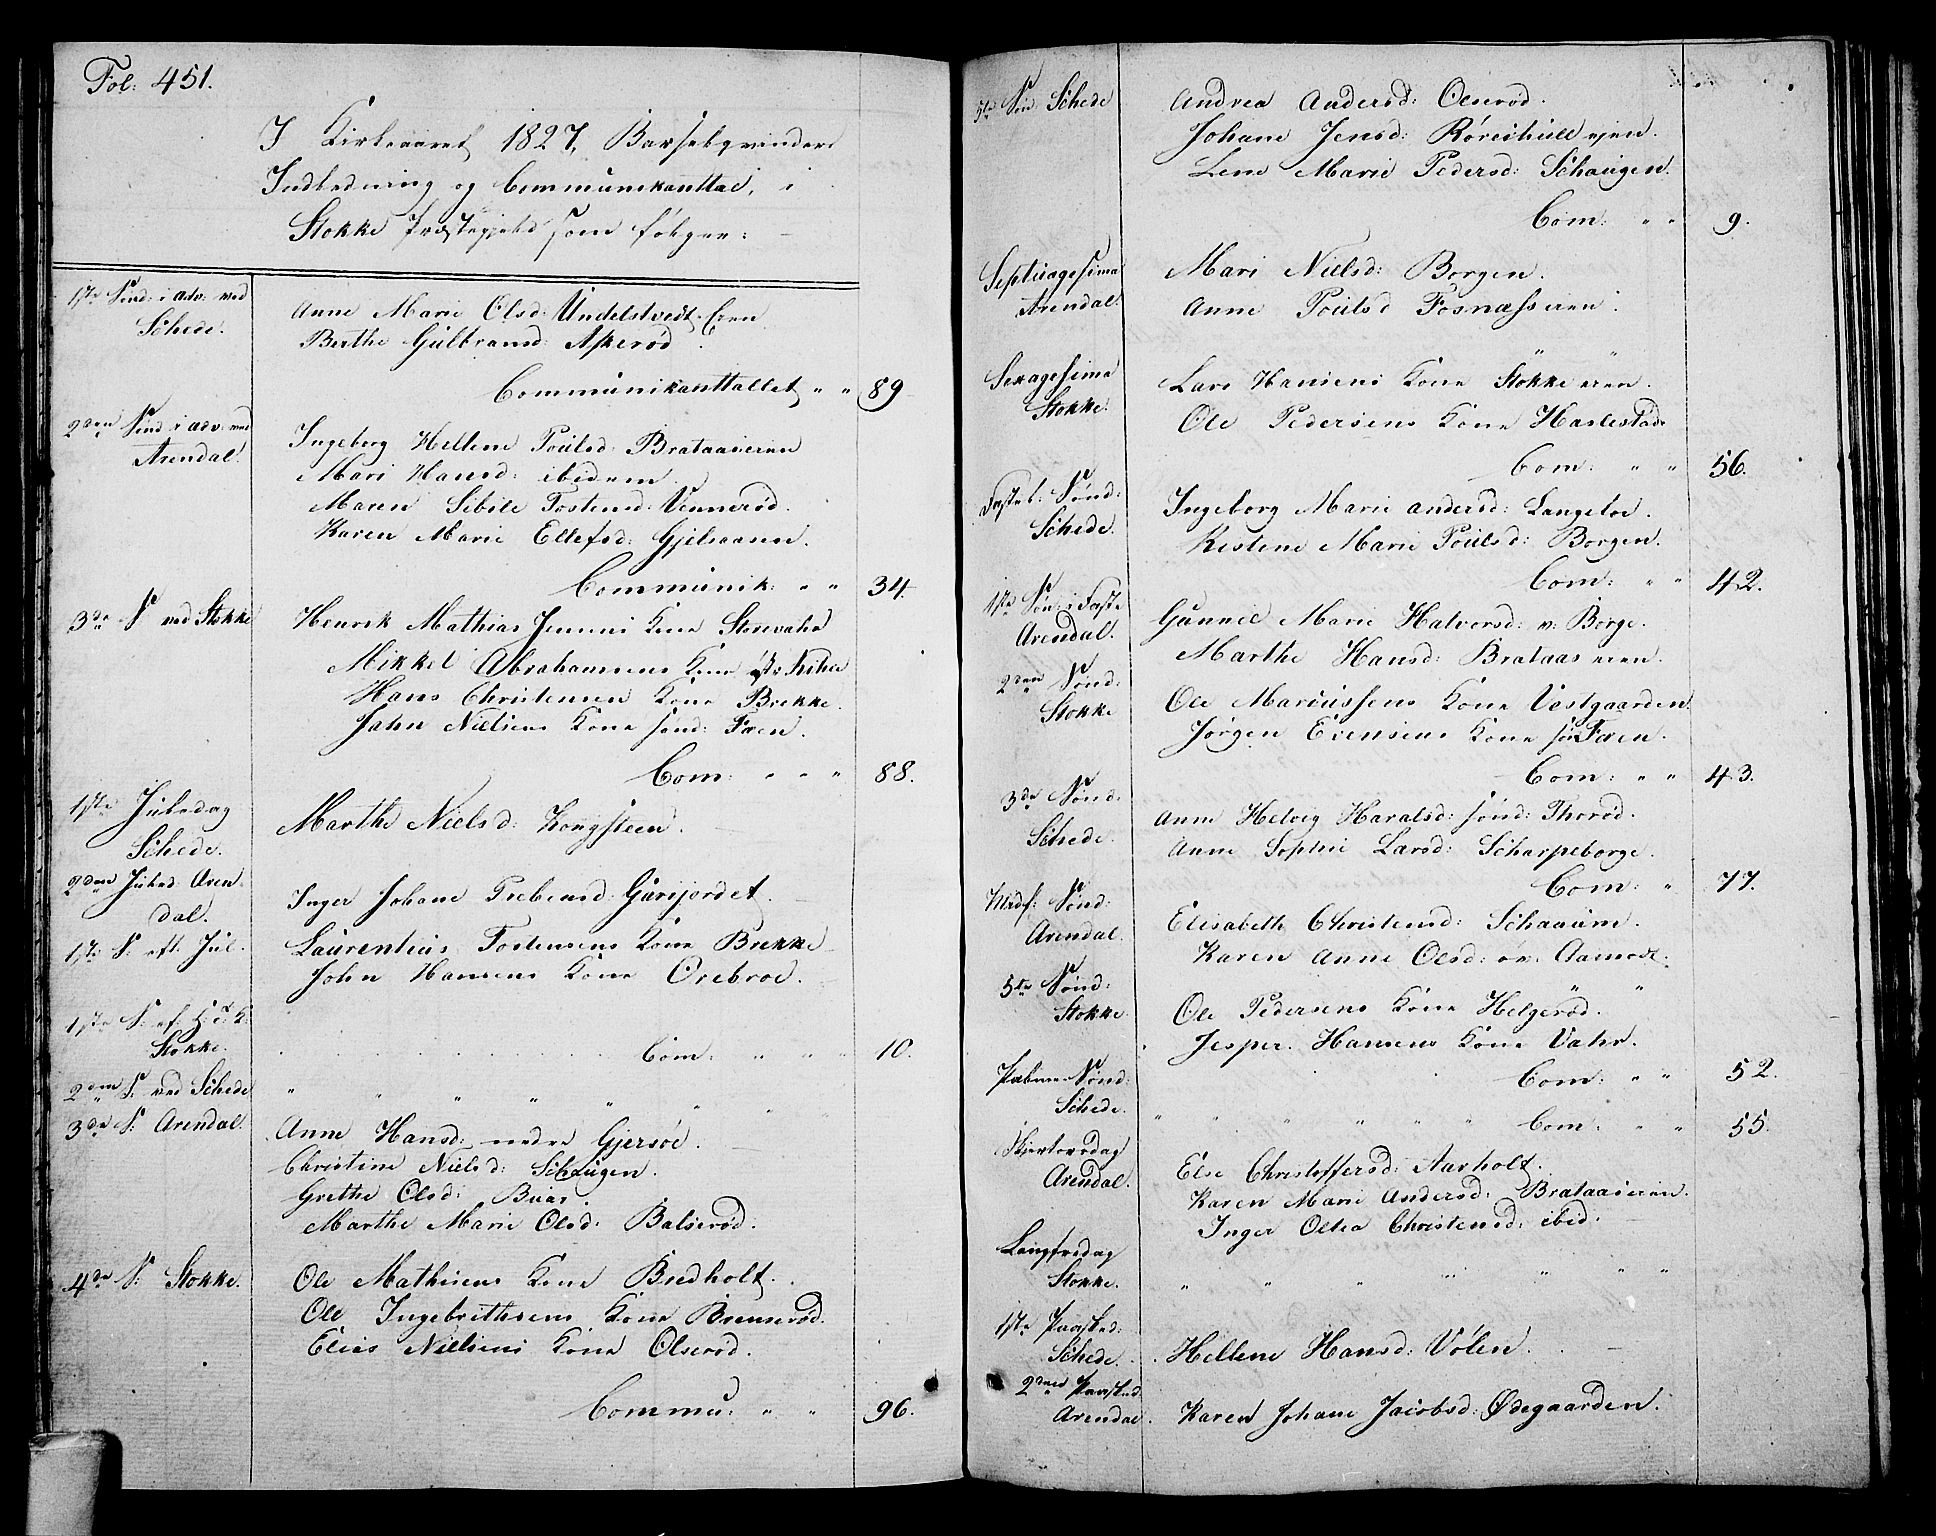 Fol: 451.
I Kirkeaaret 1827, Barselqvinders
Indledning og Communikanttal, i
Stokke Præstegjeld som følger:
1ste Sønd: i Adv: ved
Schede.
Anne Marie Olsd: Undelstvedt Eien
Berthe Gulbransd: Askerød.
Communikanttallet " " 89
2den Sønd i Adv: ved
Arendal.
Ingeborg Hellene Poulsd: Brataaseien
Mari Hansd: ibidem.
Maren Sibile Tostensd: Vennerød.
Karen Marie Ellefsd: Gjelsaasen.
Communik: " " 34.
3de S ved Stokke
Henrik Mathias Jensens Kone Storevahr
Mikkel Abrahamsens Kone
Hans Christensen Kone Brekke.
John Nielsens Kone sønd: Fæen.
Com: " " " 88.
1ste Juledag
Schede.
Marthe Nielsd: Kongsteen.
2den Juled: Aren-
dal.
Inger Johane Prebensd: Gurijordet.
1ste S: eft. Jul.
Laurentius Tostensens Kone Brekke
John Hansens Kone Orebroe.
1ste S: ef: H: 3: K:
Stokke.
Com: " " " 10.
2den S: ved Schede " " " " " " "
3de S: Arendal.
Anne Hansd: nedre Gjersøe.
Christine Nielsd: Schaugen.
Grethe Olsd: Buas
Marthe Marie Olsd: Balserød.
4de S: Stokke.
Ole Mathisens Kone Bredholt.
Ole Ingebrethsens Kone Brenserød.
Elias Nielsens Kone Olserød.
Commu: " " 96.
5te Søn Schede
Andrea Andersd: Olserød.
Johane Jensd: Røreshull ejen.
Lene Marie Pedersd: Schaugen.
Com: " " 9.
Septuagesima
Arendal.
Mari Nielsd: Borgen.
Anne Poulsd Fosnæss eien.
Sexagesima
Stokke.
Lars Hansens Kone Stokke eien.
Ole Pedersens Kone Haslestad.
Com: " " 56.
Fastel: Sønd:
Schede.
Ingeborg Marie Andersd: Langeloe.
Kistene Marie Poulsd: Borgen.
Com: " " 42.
1ste Søn: i Faste
Arendal.
Gunnel Marie Halvorsd: v: Borge.
Marthe Hansd: Brataas eien.
2den Sønd:
Stokke
Ole Mariussens Kone Vestgaarden.
Jørgen Evensens Kone søn Fæen.
Com: " " 43.
3de Sønd:
Schede.
Anne Helvig Haralsd: sønd: Thorød.
Anne Sophie Larsd: Scharpeborge.
Com: " 77.
Midf: Sønd:
Arendal.
Elisabeth Christensd: Schaaum.
Karen Anne Olsd: øv: Aamodt.
5te Sønd:
Stokke.
Ole Pedersens Kone Helgerød.
Jesper Hansens Kone Vahr.
Com: " " 52.
Palme Sønd:
Schede.
" " " " " " Com: " " 55.
Skjertorsdag
Arendal.
Else Christoffersd: Aarholt.
Karen Marie Andersd: Brataaseien.
Inger Oltea Christensd: ibid.
Langfredag
Stokke.
" " " " " " "
1ste Paasked:
Schede.
Hellene Hansd: Vølen.
2den Paasked:
Arendal.
Karen Johane Jacobsd: Ødegaarden.